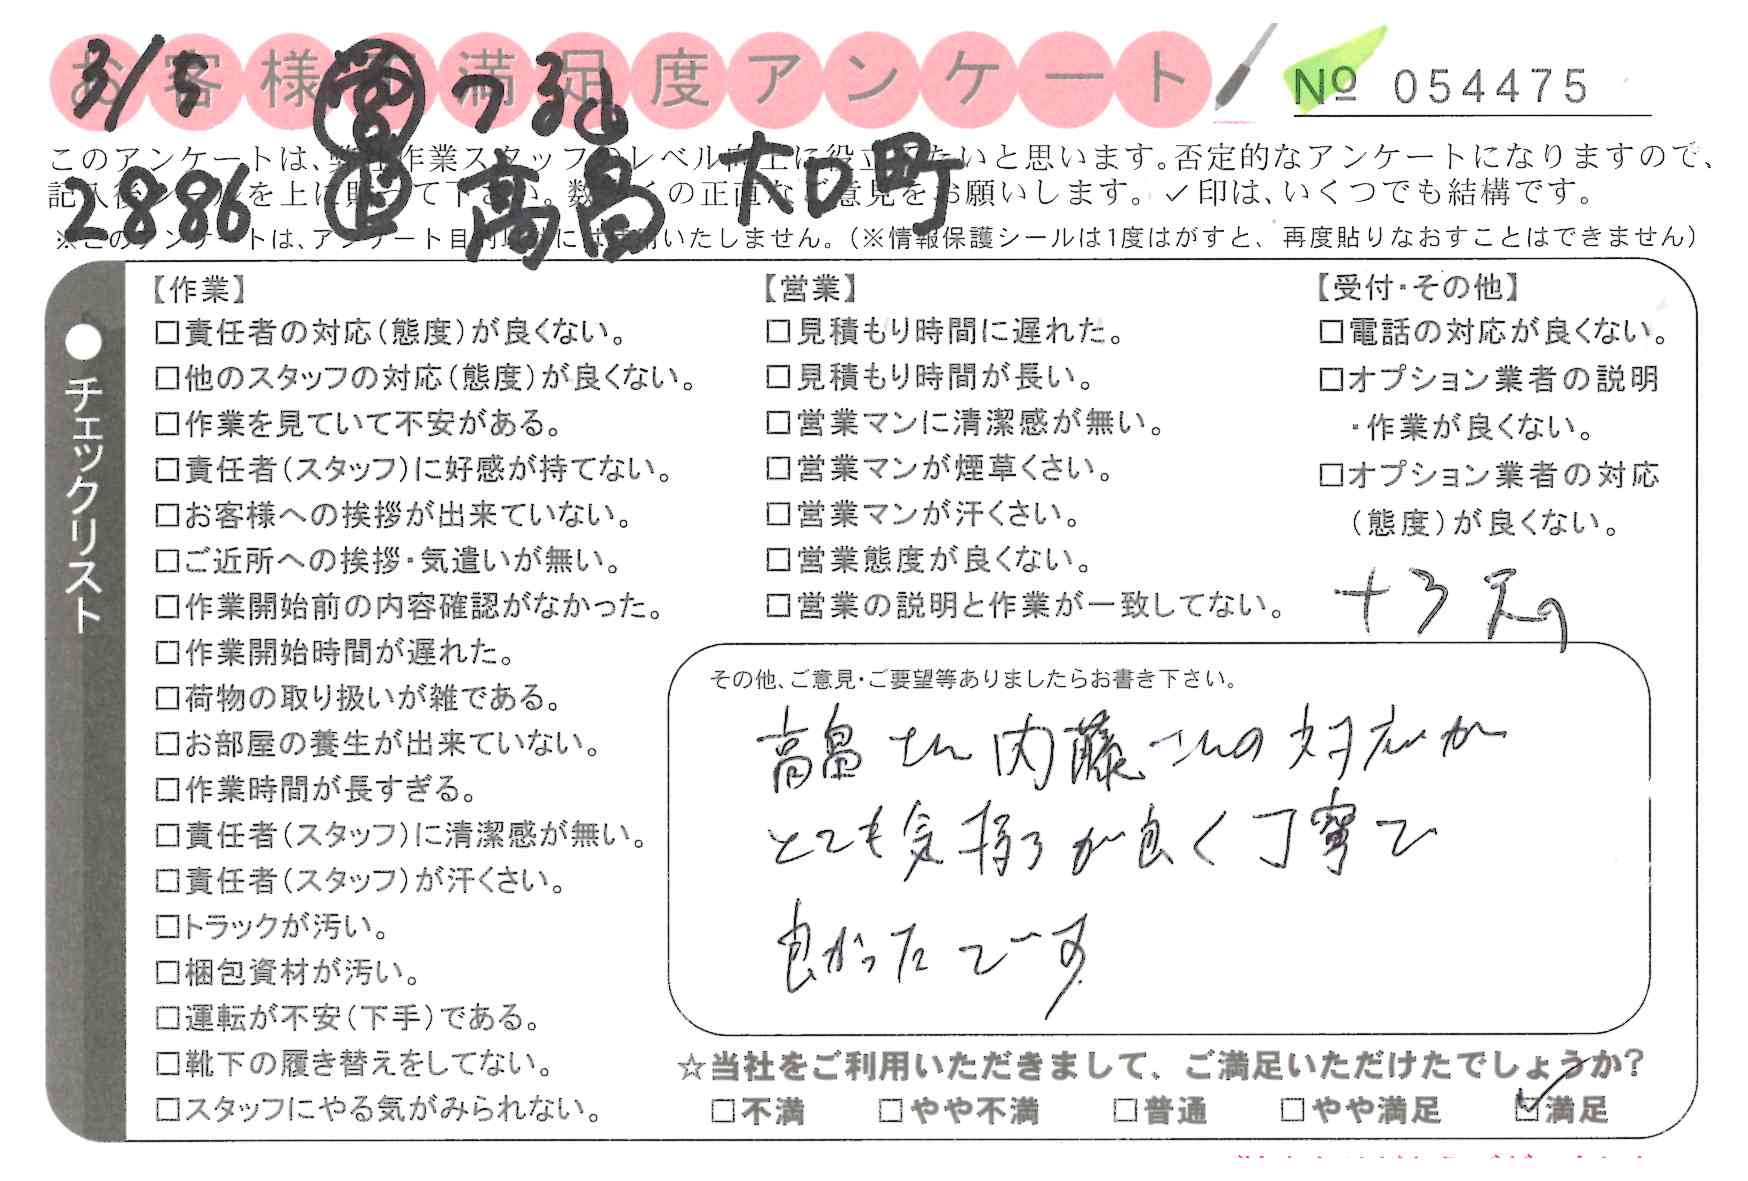 お客様満足度アンケート
№ 054475
3/5 営 つるし
2886 高畠 大口町
このアンケートは、弊社作業スタッフのレベル向上に役立てたいと思います。否定的なアンケートになりますので、
記入後シールを上に貼って下さい。数多くの正直なご意見をお願いします。✓印は、いくつでも結構です。
※このアンケートは、アンケート目的以外には使用いたしません。（※情報保護シールは1度はがすと、再度貼りなおすことはできません）
●チェックリスト
【作業】
□責任者の対応（態度）が良くない。
□他のスタッフの対応（態度）が良くない。
□作業を見ていて不安がある。
□責任者（スタッフ）に好感が持てない。
□お客様への挨拶が出来ていない。
□ご近所への挨拶・気遣いが無い。
□作業開始前の内容確認がなかった。
□作業開始時間が遅れた。
□荷物の取り扱いが雑である。
□お部屋の養生が出来ていない。
□作業時間が長すぎる。
□責任者（スタッフ）に清潔感が無い。
□責任者（スタッフ）が汗くさい。
□トラックが汚い。
□梱包資材が汚い。
□運転が不安（下手）である。
□靴下の履き替えをしてない。
□スタッフにやる気がみられない。
【営業】
□見積もり時間に遅れた。
□見積もり時間が長い。
□営業マンに清潔感が無い。
□営業マンが煙草くさい。
□営業マンが汗くさい。
□営業態度が良くない。
□営業の説明と作業が一致してない。
【受付・その他】
□電話の対応が良くない。
□オプション業者の説明
・作業が良くない。
□オプション業者の対応
（態度）が良くない。
+3
その他、ご意見・ご要望等ありましたらお書き下さい。
高畠さん内藤さんの対応が
とても気持ちが良く丁寧で
良かったです
☆当社をご利用いただきまして、ご満足いただけたでしょうか？
□不満 □やや不満 □普通 □やや満足 ☑満足